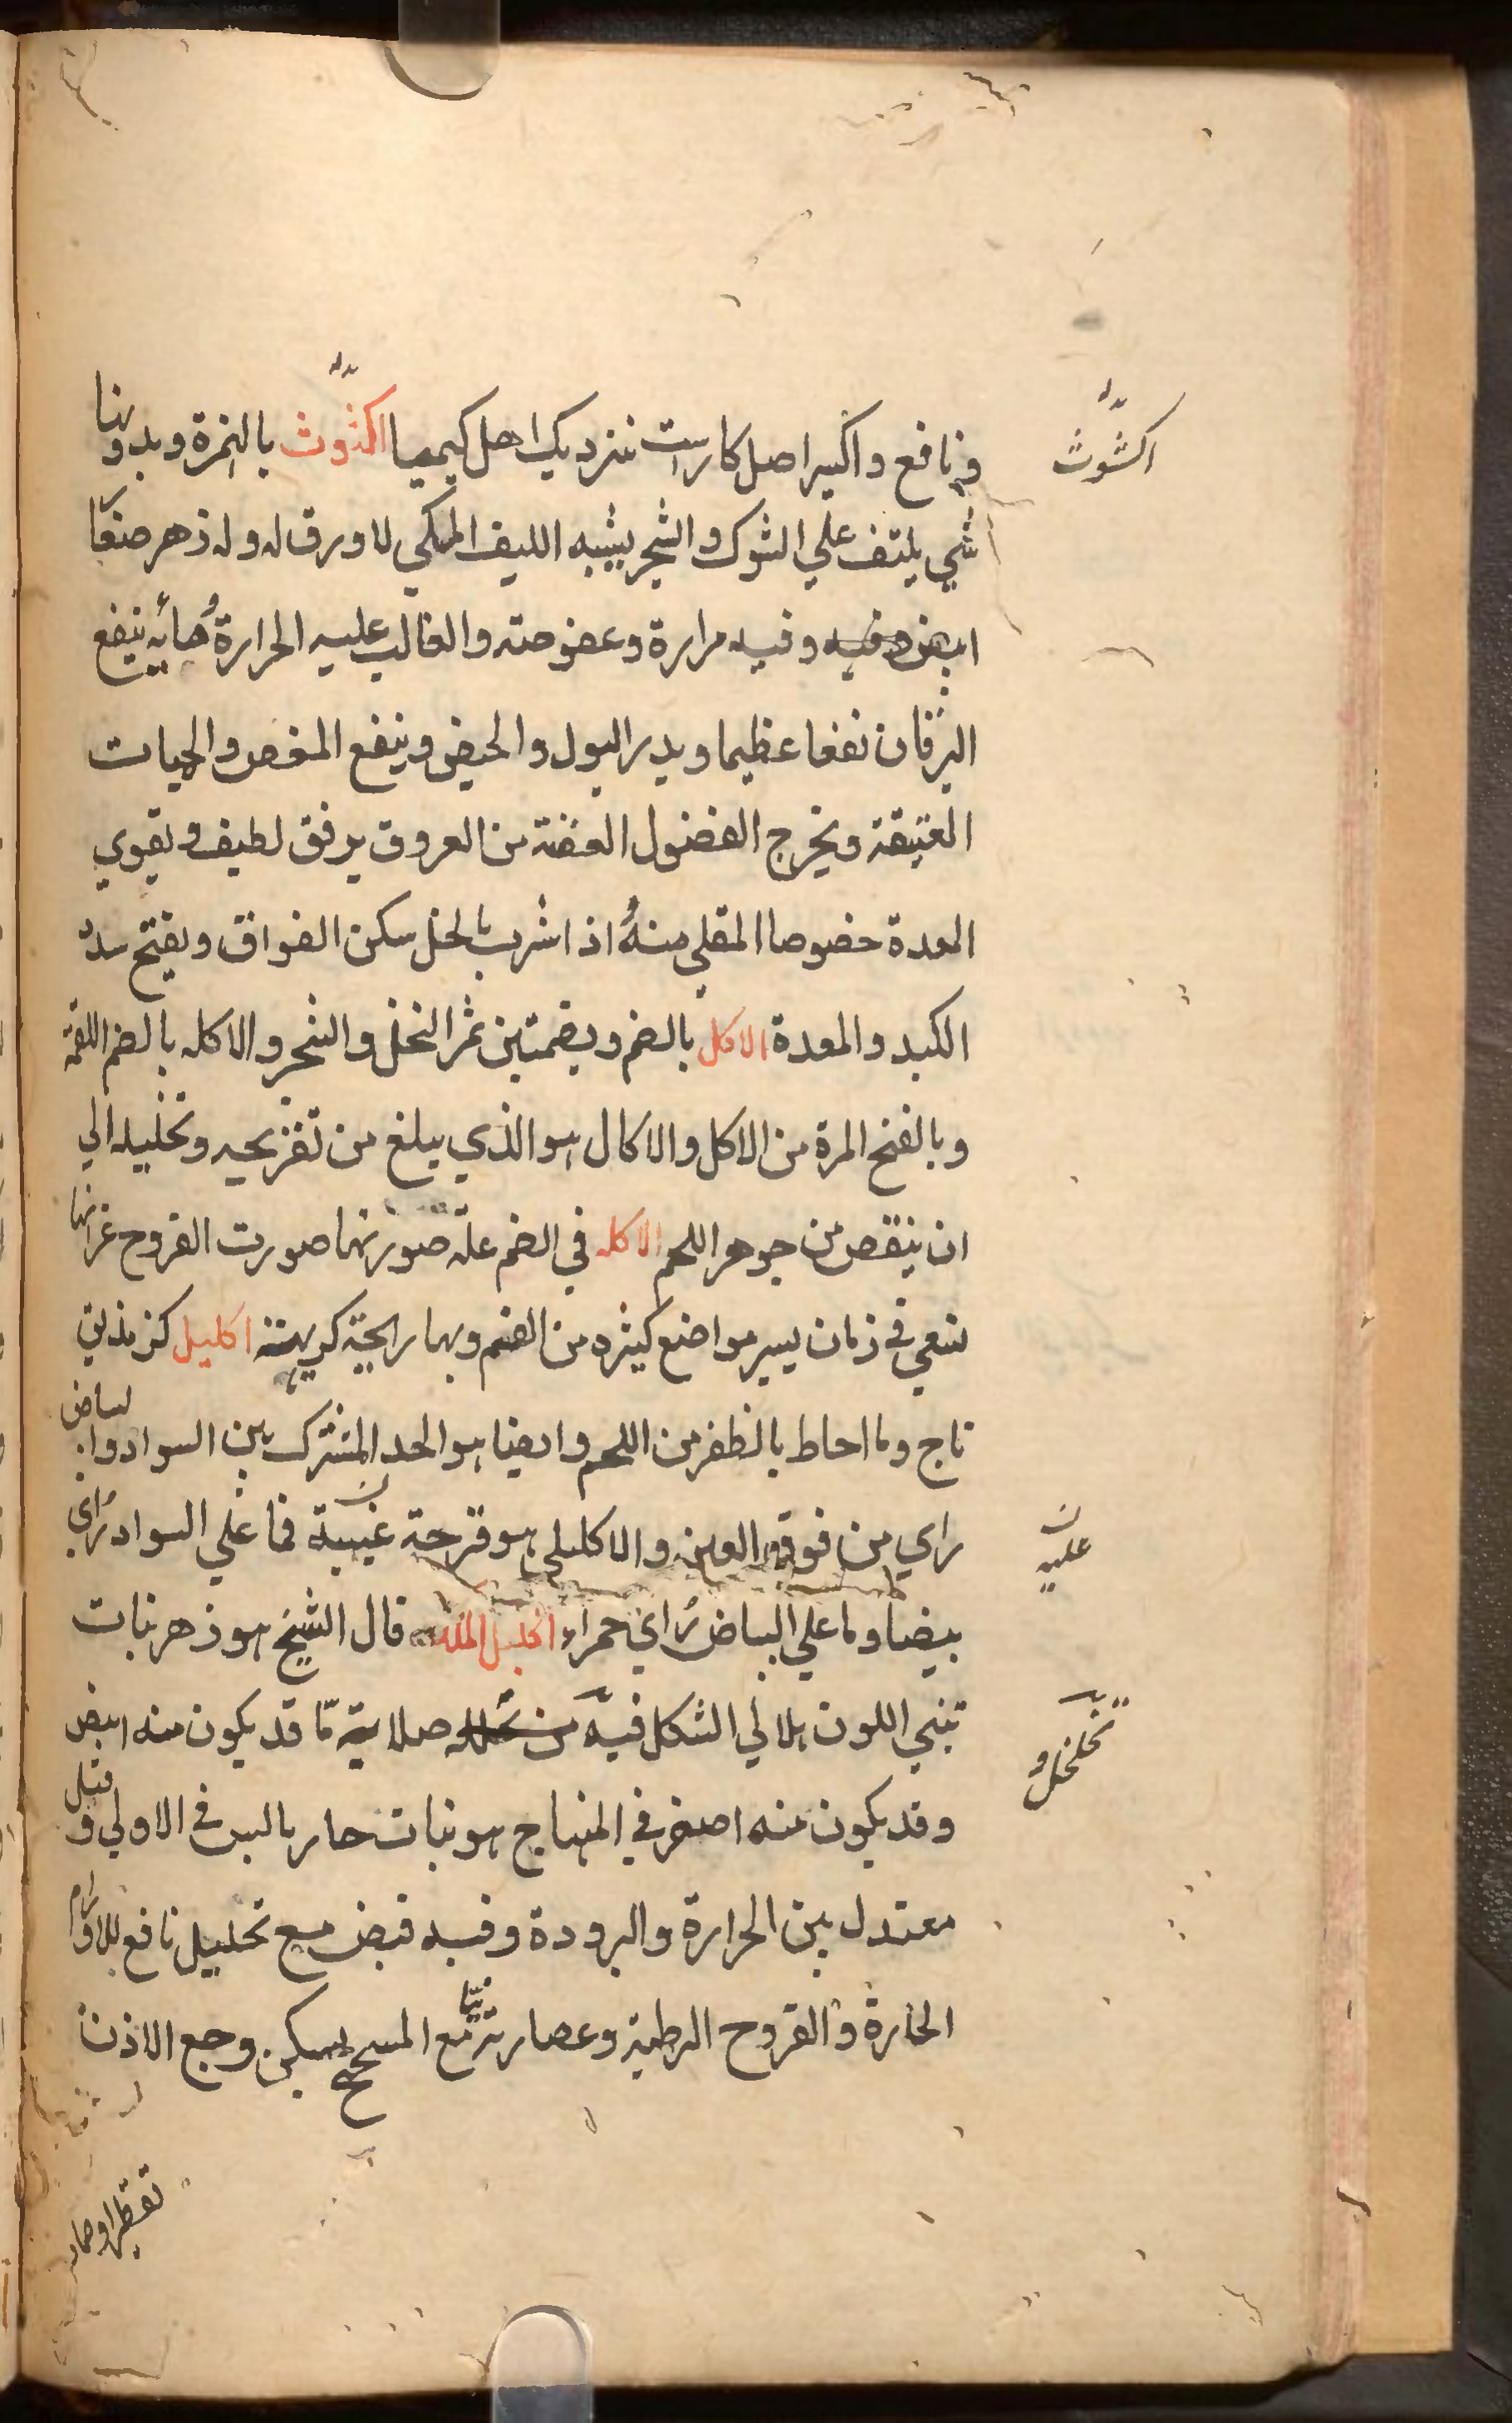 اکشوث
و نافع و اکسیر اصل کار است بنزدیک اهل کیمیا اکشوث بالهمزة و بدونها
شی یلتف علی الشوک و الشجر یشبه اللیف المکی لا ورق له و له زهر صغار
ابیض و فیه مرارة و عفوصته و الغالب علیه الحرارة هایه ینفع
الیرقان نفعا عظیما و یدر البول و الحیض و ینفع المغص و الحمیات
العتیقة و یخرج الفضول العفنة من العروق برفق لطیف و یقوی
المعدة خصوصا المقلی منه اذا شرب بالخل سکن الفواق و یفتح سدد
الکبد و المعدة الاکل بالضم و بضمتین ثمر النخل و الشجر و الاکله بالضم اللقمه
و بالفتح المرة من الاکل و الاکال هو الذی یبلغ من تقریحه و تحلیله الی
ان ینقص من جوهر اللحم الاکله فی الفم علة صورتها صورت القروح غیر انها
تسعی فی زمان یسیر مواضع کثیره من الفم و بها رایحة کریهة اکلیل کزنذیق
تاج و ما احاط بالظفر من اللحم و ایضا هو الحد المشترک بین السواد و البیاض
رای من فوقه العین و الاکلیلی هو قرحة عنبیة فما علی السواد رُای
علیه
بیضا و ما علی البیاض رُای حمراء اکلیل الملک قال الشیخ هو زهر نبات
تبنی اللون هلالی الشکل فیه مع تخلخل صلابة ما قد یکون منه ابیض
تخلخل و
و قد یکون منه اصفر فی المنهاج هو نبات حار یابس فی الاولی و قیل
معتدل بین الحرارة و البرودة و فیه قبض مع تحلیل نافع للاورام
الحارة و القروح الرطبة و عصارته مع المیبختج یسکن وجع الاذن
تقطیرا و صار